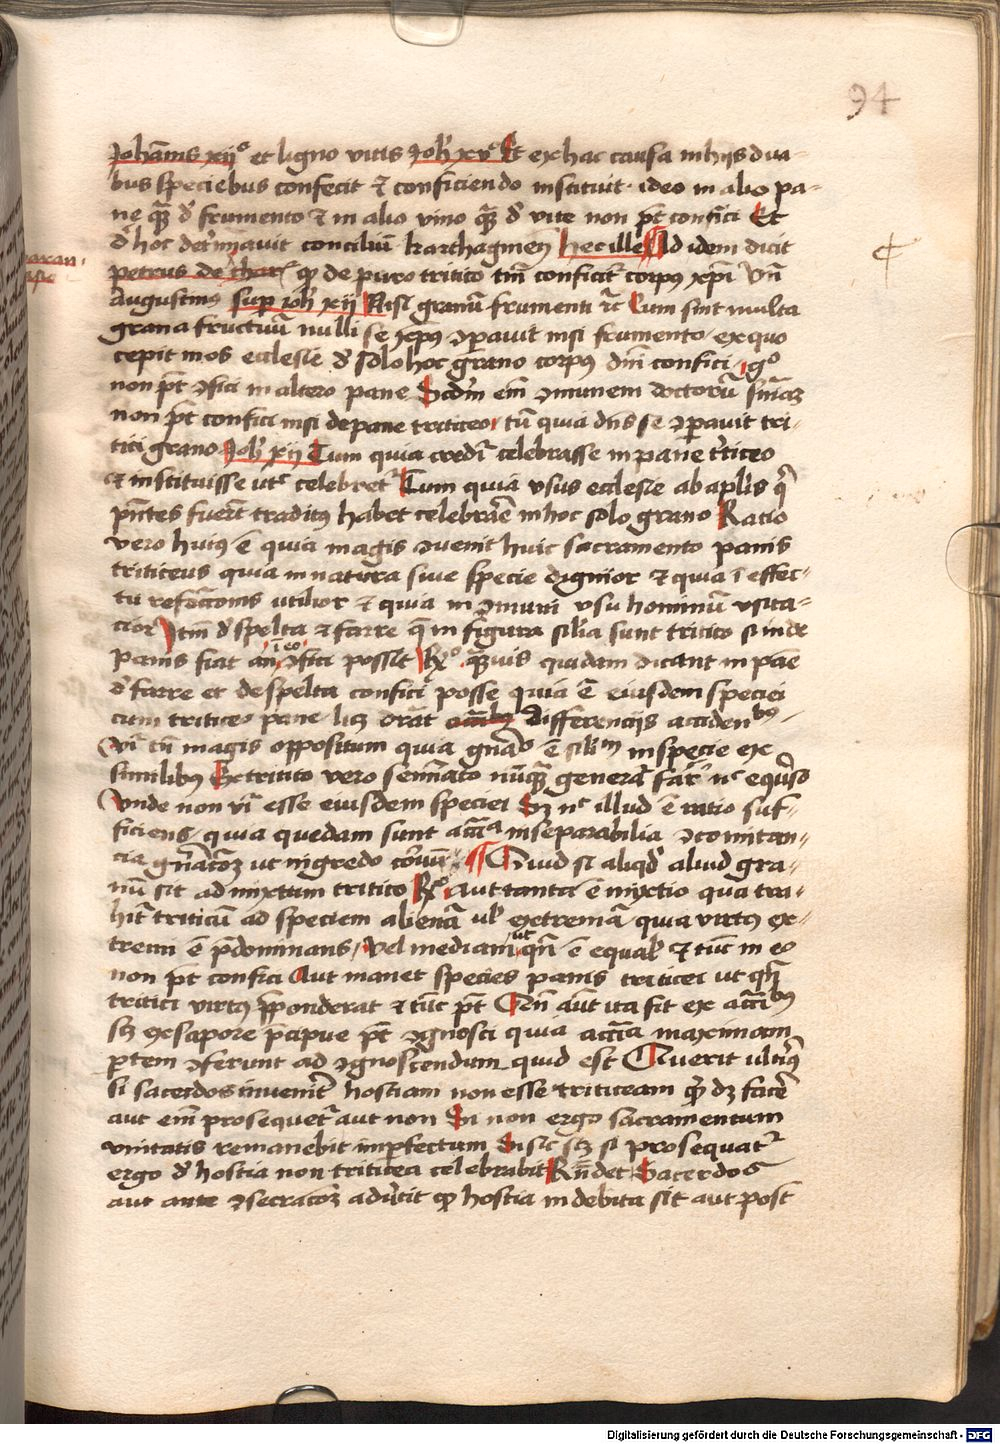 94
Joha͞nis xijº et ligno vitis Joh̓ xvº Et ex hac causa in hijs dua-
bus speciebus confecit & conficiendo instituit· ideo in alio pa-
ne qͣꝫ d̓ frumento & in alio vino qͣꝫ d̓ vite non p̄t confici Et
d̓ hoc det̓m̄auit conciliū karthagineñ hec ille Ad idem dicit
petrus de thar̄ ꝙ de puro tritico tm̄ conficit᷑ corpꝰ xp̄i Vn̄
Augustinꝰ suꝑ Joh̓ xij Nisi granū frumenti rc̄ Cum sint multa
grana fructuū nulli se xp̄ꝰ ꝯparauit nisi frumento ex quo
cepit mos ecclesie d̓ solo hoc grano corpꝰ dn̄i confici· gº
non p̄t ꝯfici in altero pane Scd̄m em̄ ꝯmunem doctorū sn̄iaꝫ
non p̄t confici nisi de pane triticeo· tū quia dn̄s se ꝯparauit tri-
tici grano Joh̓ xij Tum quia credit᷑ celebrasse in pane t͛ticeo
& instituisse ut᷑ celebret᷑ Tum quia vsus ecclesie ab apl̄is q̄
pn̄tes fuer̄t traditꝰ habet celebrar̄e in hoc solo grano Ratio
vero huiꝰ ē quia magis ꝯuenit huic sacramento panis
triticeus quia in natura siue specie dignior & quia ī effec-
tu refc̄c̄onis vtilior & quia in ꝯmuni vsu hominū vsita-
cior Itm̄ d̓ spelta & farre q̄ in figura sil̄ia sunt tritico si inde
panis fiat an ī eo ꝯfici possit Rº qͣꝫuis quidam dicant in pāe
d̓ farre et de spelta confici posse quia ē eiusdem speciei
cum triticeo pane lꝫ differencijs acciden^bus
Vr̄ tn̄ magis oppositum quia gn̄aº ē sil̄m in specie ex
similibꝰ Ex tritico vero semīato nūqͣꝫ generat᷑ far nc̄ eꝯuerso
Vnde non vr̄ esse eiusdem speciei Sꝫ nc̄ illud ē ratio suf-
ficiens· quia quedam sunt acc̄na inseparabilia ꝯcomitan-
cia gn̄ac̄oꝫ ut nigredo coruū Quid si aliqd̓ aliud gra-
nū sit admixtum tritico Rº Aut tanta ē mixtio qua tra-
hit᷑ triticū ad speciem alienā ul̓ extremā quia virtꝰ ex-
tremi ē p̄dominans· Vel mediam ut qn̄ ē equal̓ & tūc in eo
non p̄t confici Aut manet species panis triticei ut qn̄
tritici virtꝰ p̄ponderat & tūc p̄t Cū aut ita fit ex acc̄n^bus
sꝫ ex sapore p̄cipue p̄t ꝯgnosci quia acc̄na maximam
ꝑtem ꝯferunt ad ꝯgnoscendum quid est Querit᷑ ult̓iꝰ
si sacerdos inuenit̓ hostiam non esse triticeam qͥd dꝫ facēe
aut em̄ prosequet᷑ aut non Si non ergo sacramentum
vnitatis remanebit imꝑfectum Si sic sꝫ si prosequat᷑
ergo d̓ hostia non triticea celebrabit Rn̄det Sacerdos
aut ante ꝯsecrac̄oꝫ adu̓tit ꝙ hostia indebita sit aut post
Digitalisierung gefördert durch die Deutsche Forschungsgemeinschaft - DFG